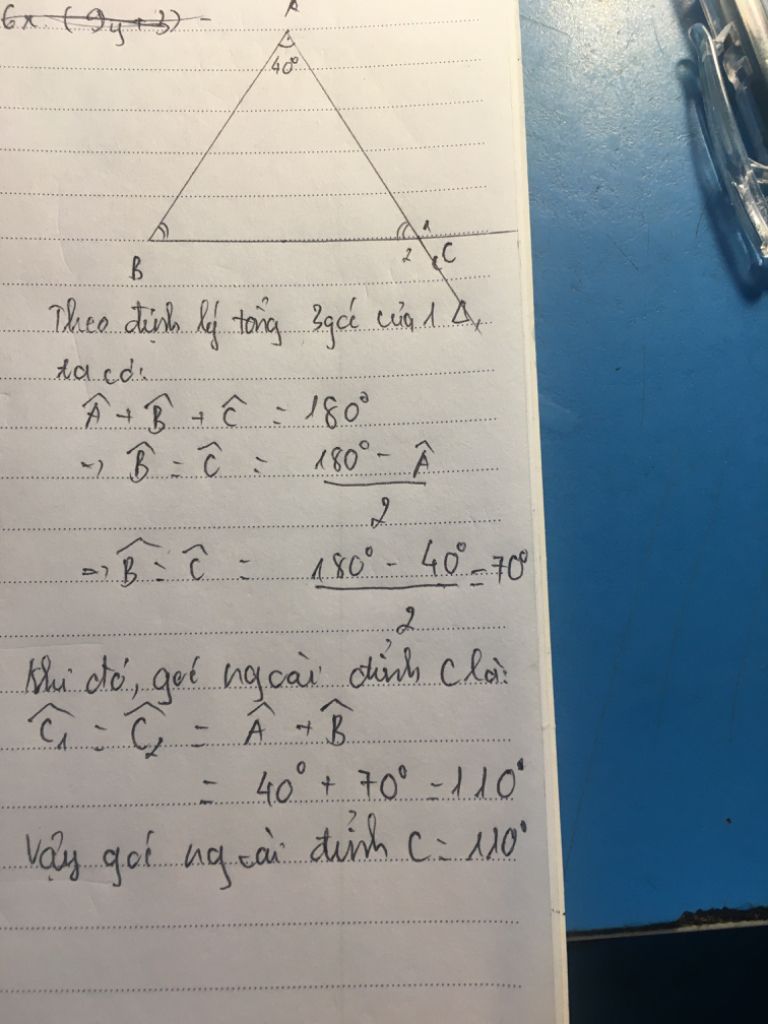 6x. (9y+3) -
A
40°
B
1
2
C
Theo định lý tổng 3 góc của 1 Δ,
ta có:
Â + B̂ + Ĉ = 180°
=> B̂ = Ĉ = (180° - Â)/2
=> B̂ = Ĉ = (180° - 40°)/2 = 70°
Khi đó, góc ngoài đỉnh C là:
Ĉ1 = Ĉ2 = Â + B̂
= 40° + 70° = 110°
Vậy góc ngoài đỉnh C = 110°